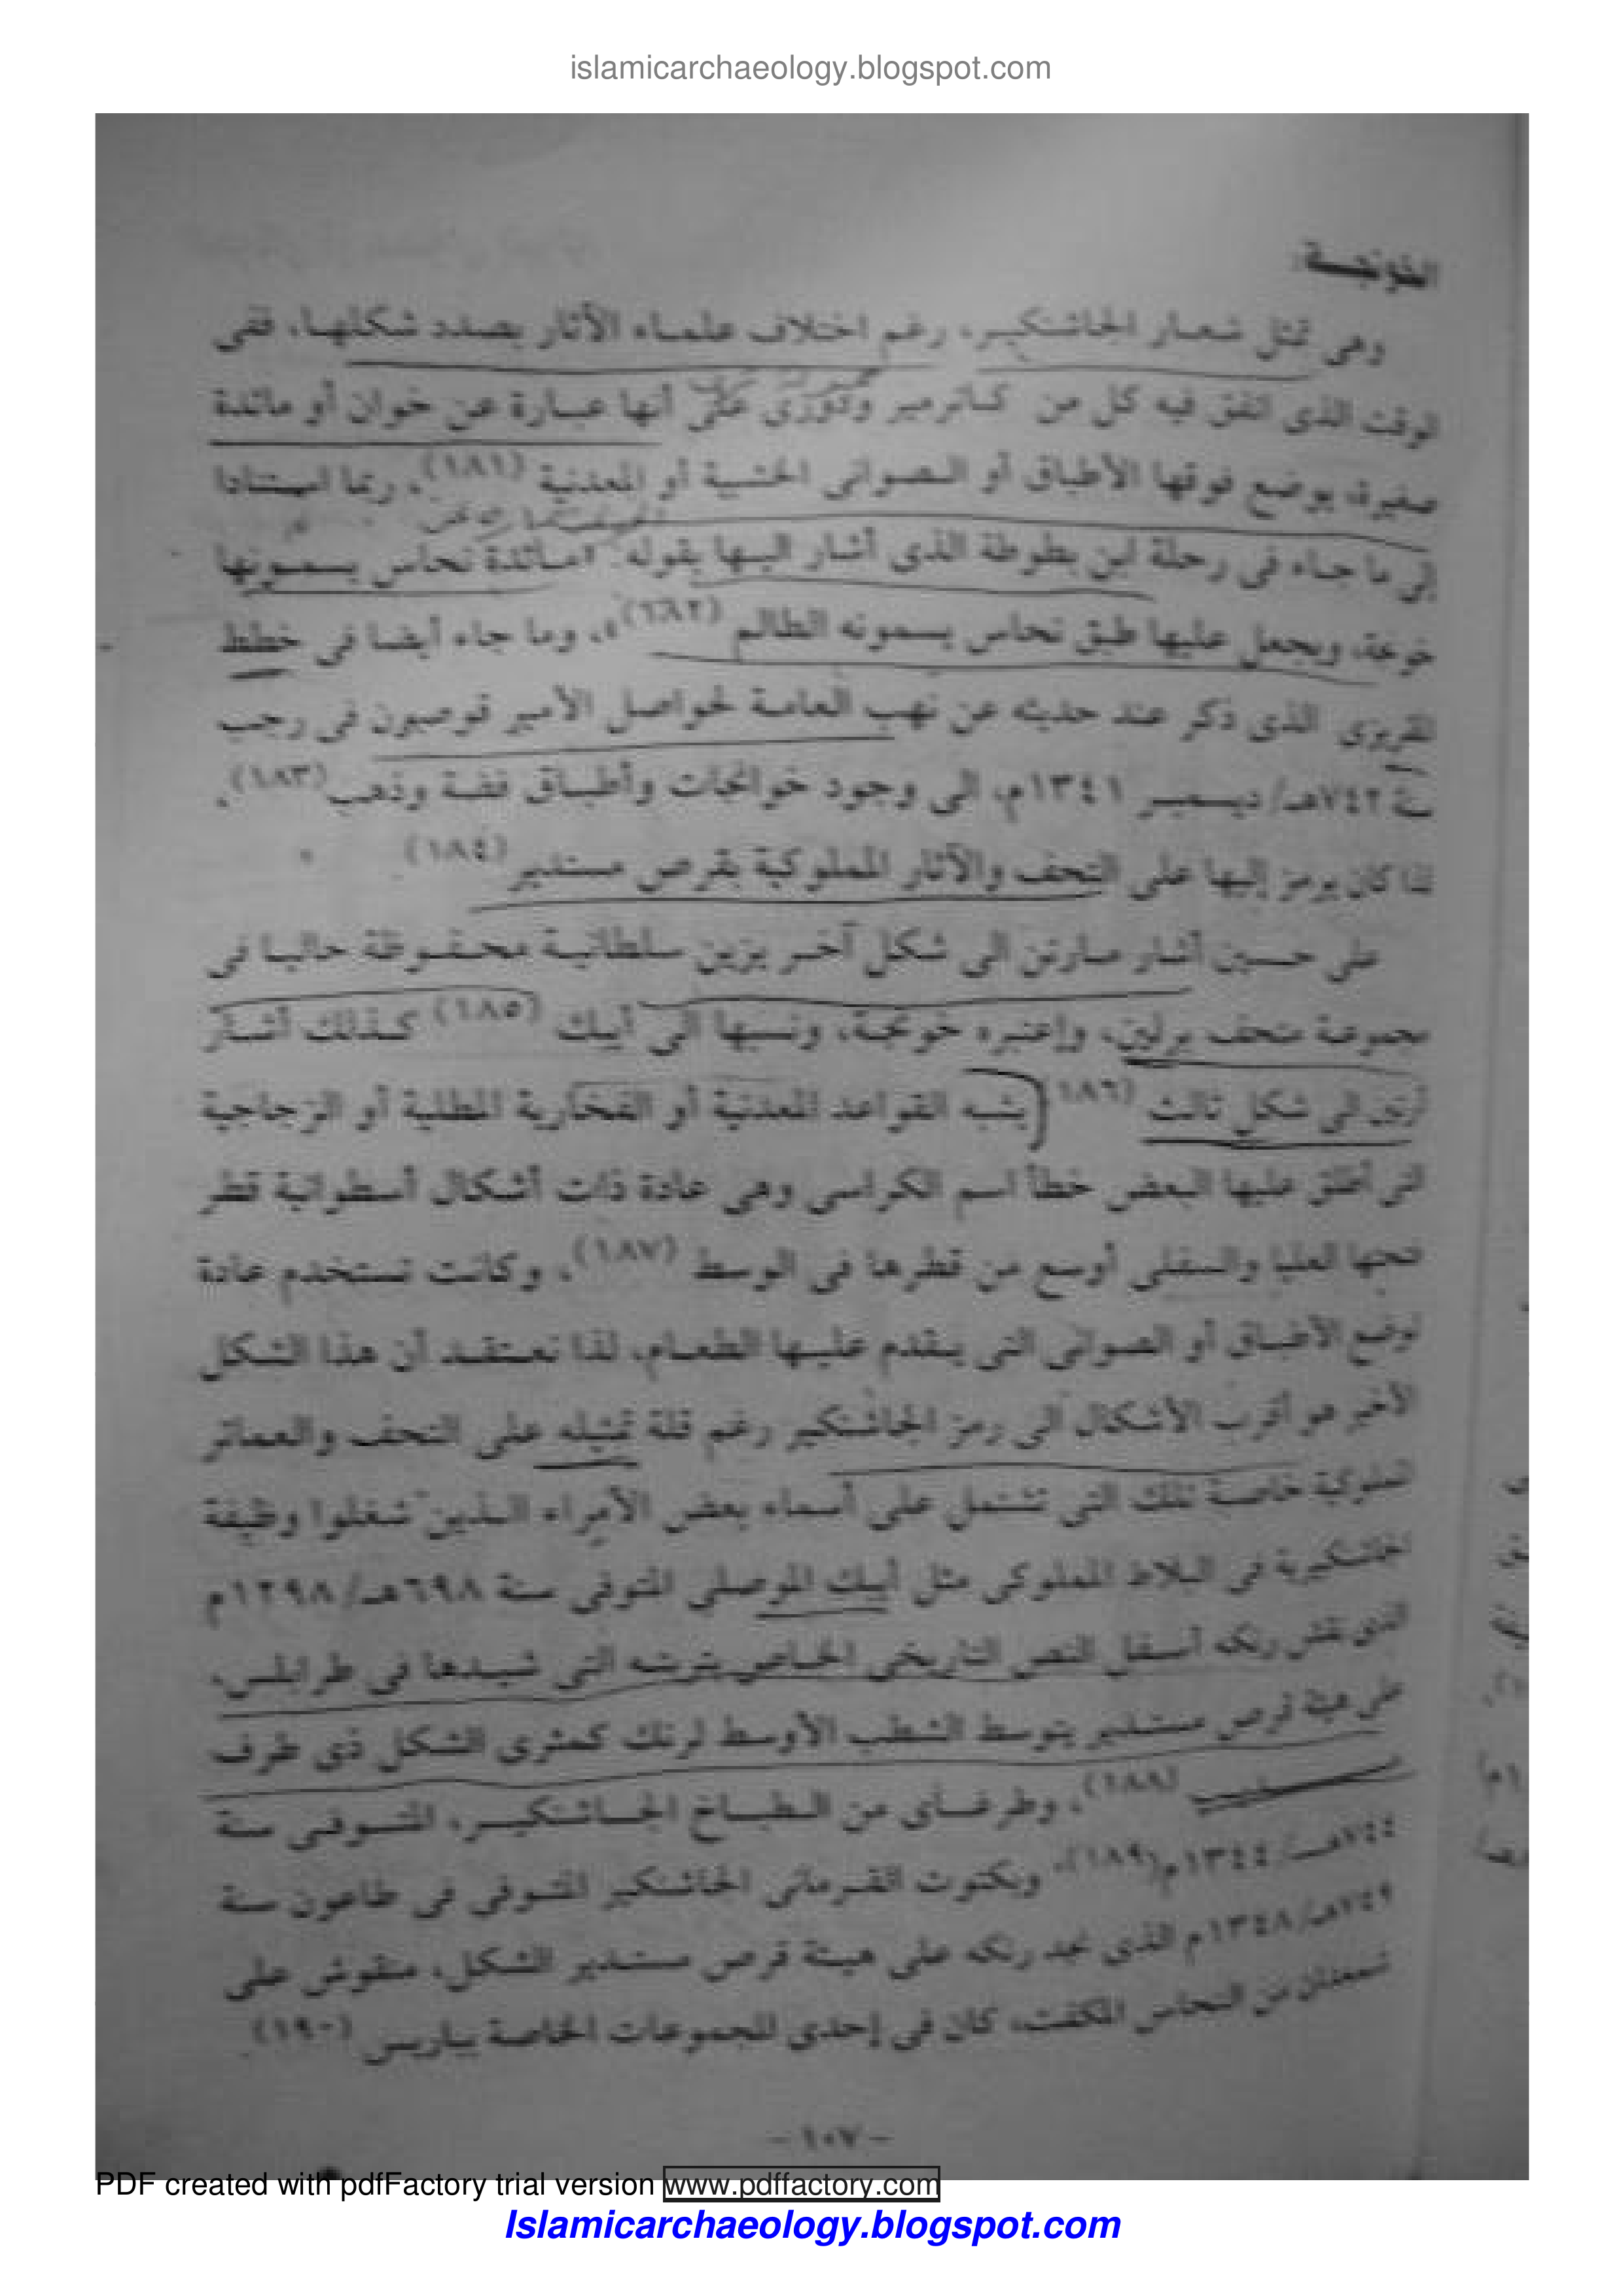 islamicarchaeology.blogspot.com
الخونجـة:
وهى تمثل شعـار الجاشنكيـر، رغم اختلاف علمـاء الأثار بصدد شكلهـا، ففى
الوقت الذى اتفق فيه كل من كـاترمير ودوزى على أنها عبـارة عن خوان أو مائدة
صغيرة، يوضع فوقها الأطباق أو الـصوانى الخشبية أو المعدنية (١٨١)، ربما استنادا
إلى ما جـاء فى رحلة ابن بطوطة الذى أشار اليـها بقوله: «مـائدة نحاس يسمـونها
خونجة، ويجعل عليها طبق نحاس يسمونه الطالم (١٨٢)»، وما جاء أيضا فى خطط
المقريزى الذى ذكر عند حديثه عن نهب العامـة لحواصل الأمير قوصون فى رجب
سنة ٧٤٢هـ/ ديسمبر ١٣٤١م، الى وجود خوانجات وأطبـاق فضـة وذهب (١٨٣).
لذا كان يرمز إليها على التحف والآثار المملوكية بقرص مستدير (١٨٤)
على حسـين أشار مـارتن الى شكل آخـر يزين سلطانيـة محـفـوظة حاليـا فى
مجموعة متحف برلين، وإعتبره خونجـة، ونسبها الى أيبك (١٨٥) كـذلك أشـار
الى شكل ثالث (١٨٦) يشبه القواعد المعدنية أو الفخارية المطلية أو الزجاجية
التى أطلق عليها البعض خطأ اسم الكراسى وهى عادة ذات أشكال أسطوانية قطر
فتحتها العليا والسفلى أوسع من قطرها فى الوسط (١٨٧)، وكانت تستخدم عادة
لوضع الأطبـاق أو الصوانى التى يـقدم عليـها الطعـام، لذا نعـتقـد أن هذا الشكل
الأخير هو أقرب الأشكال الى رمز الجاشنكير رغم قلة تمثيله على التحف والعمائر
المملوكية خاصـة تلك التى تشتمل على أسماء بعض الأمراء الـذين شغلوا وظيفة
الجاشنكيرية فى البلاط المملوكى مثل أيبك الموصلى المتوفى سنة ٦٩٨هـ/١٢٩٨م
الذى نقش رنكه أسفل النص التاريخى الخـاص بتربتـه التى شيـدها فى طرابلس،
على هيئة قرص مستدير يتوسط الشطب الأوسط لرنك كمثرى الشكل ذى طرف
(١٨٨)، وطرغـاى من الـطبـاخ الجـاشنكيـر، المتـوفـى سنة
٧٤٤هـ/ ١٣٤٤م(١٨٩)، وبكتوت القـرمانى الجاشنكير المتـوفى فى طاعون سنة
٧٤٩هـ/١٣٤٨م الذى نجد رنكه على هيـئة قرص مستـدير الشكل، منقوش على
شمعدان من النحاس المكفت، كان فى إحدى المجموعات الخاصة بباريس (١٩٠)
- ١٠٧ -
PDF created with pdfFactory trial version www.pdffactory.com
Islamicarchaeology.blogspot.com